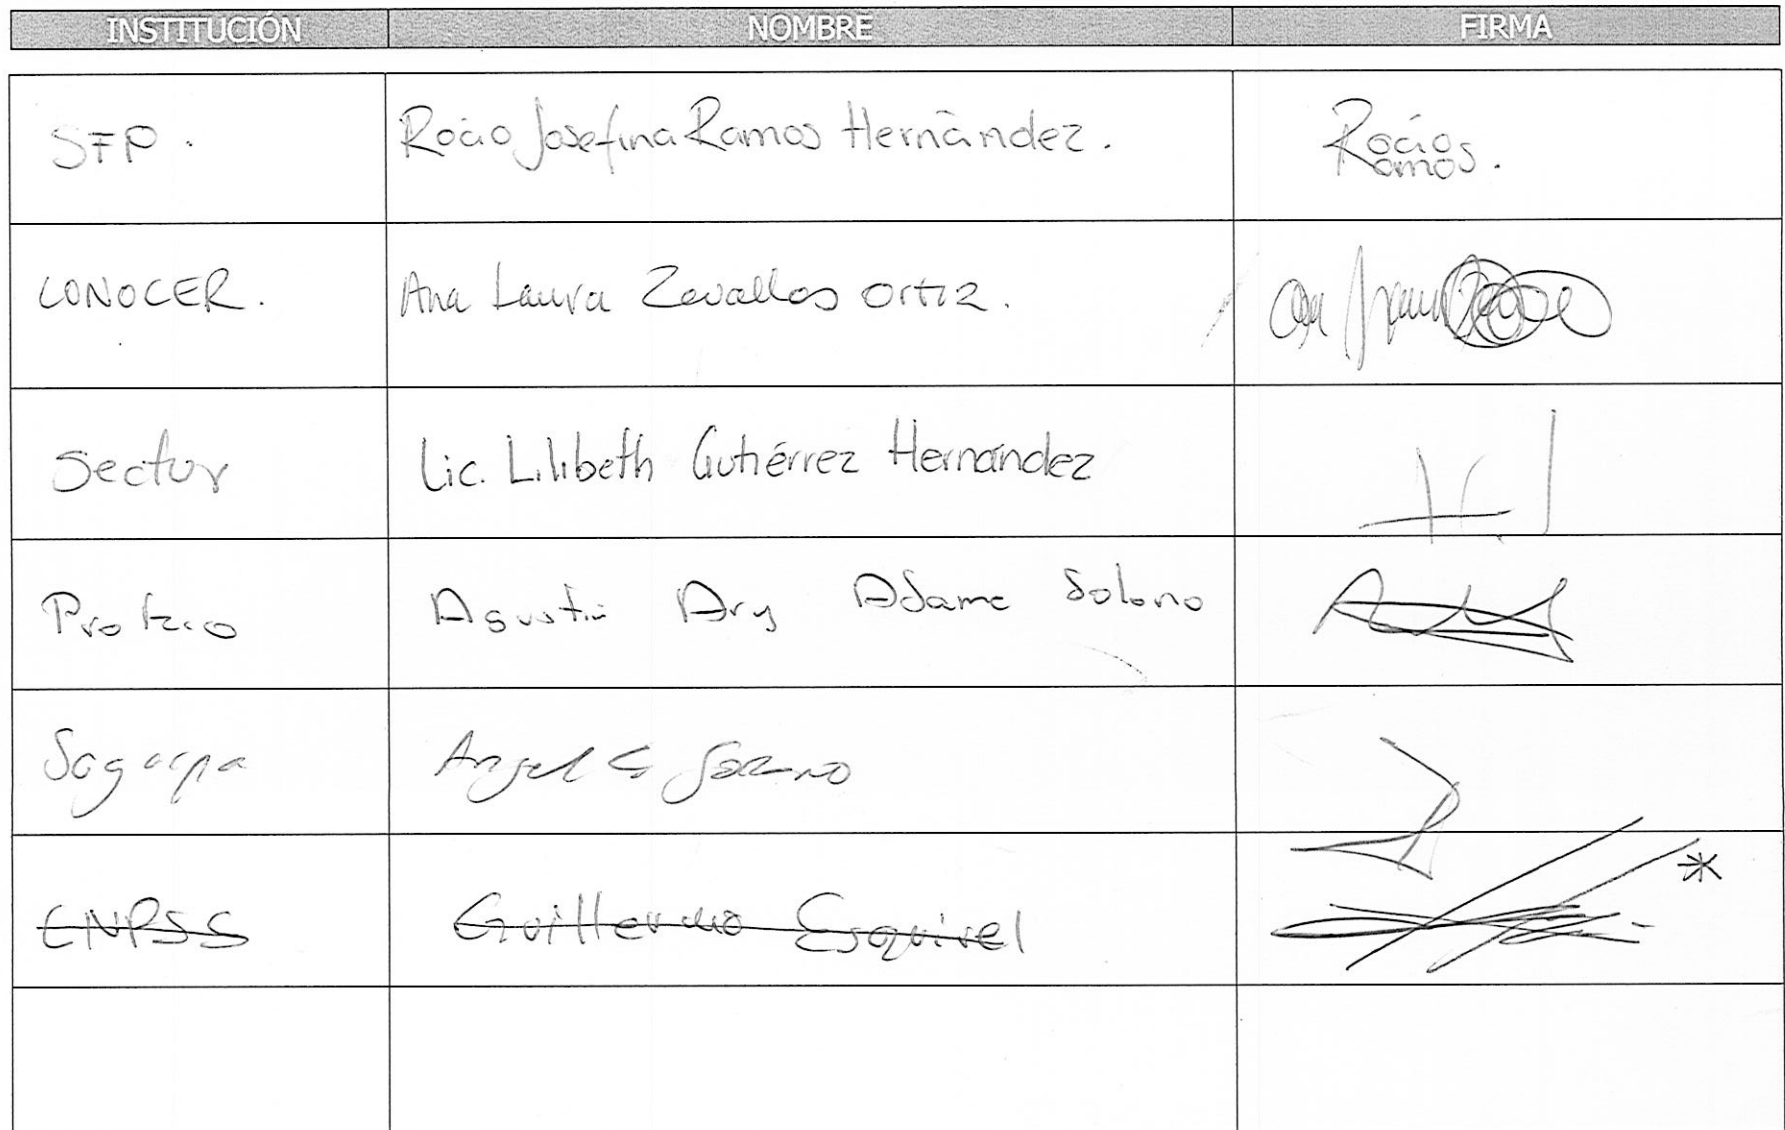 INSTITUCIÓN NOMBRE FIRMA
SFP. Rocío Josefina Ramos Hernández. Rocío
Ramos.
CONOCER. Ana Laura Zavallos Ortiz. Ana Laura
Sector Lic. Lilibeth Gutiérrez Hernández
Agustín Ary Adame Solano
Sagarpa Angel G
CNPSS Guillermo Esquivel *